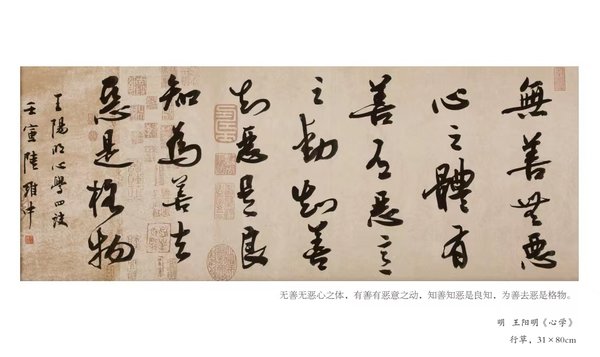 無善無惡
心之體有
善有惡意
之動知善
知惡是良
知為善去
惡是格物
王陽明心學四訣
壬寅陸雅中
无善无恶心之体，有善有恶意之动，知善知恶是良知，为善去恶是格物。
明 王阳明《心学》
行草，31×80cm